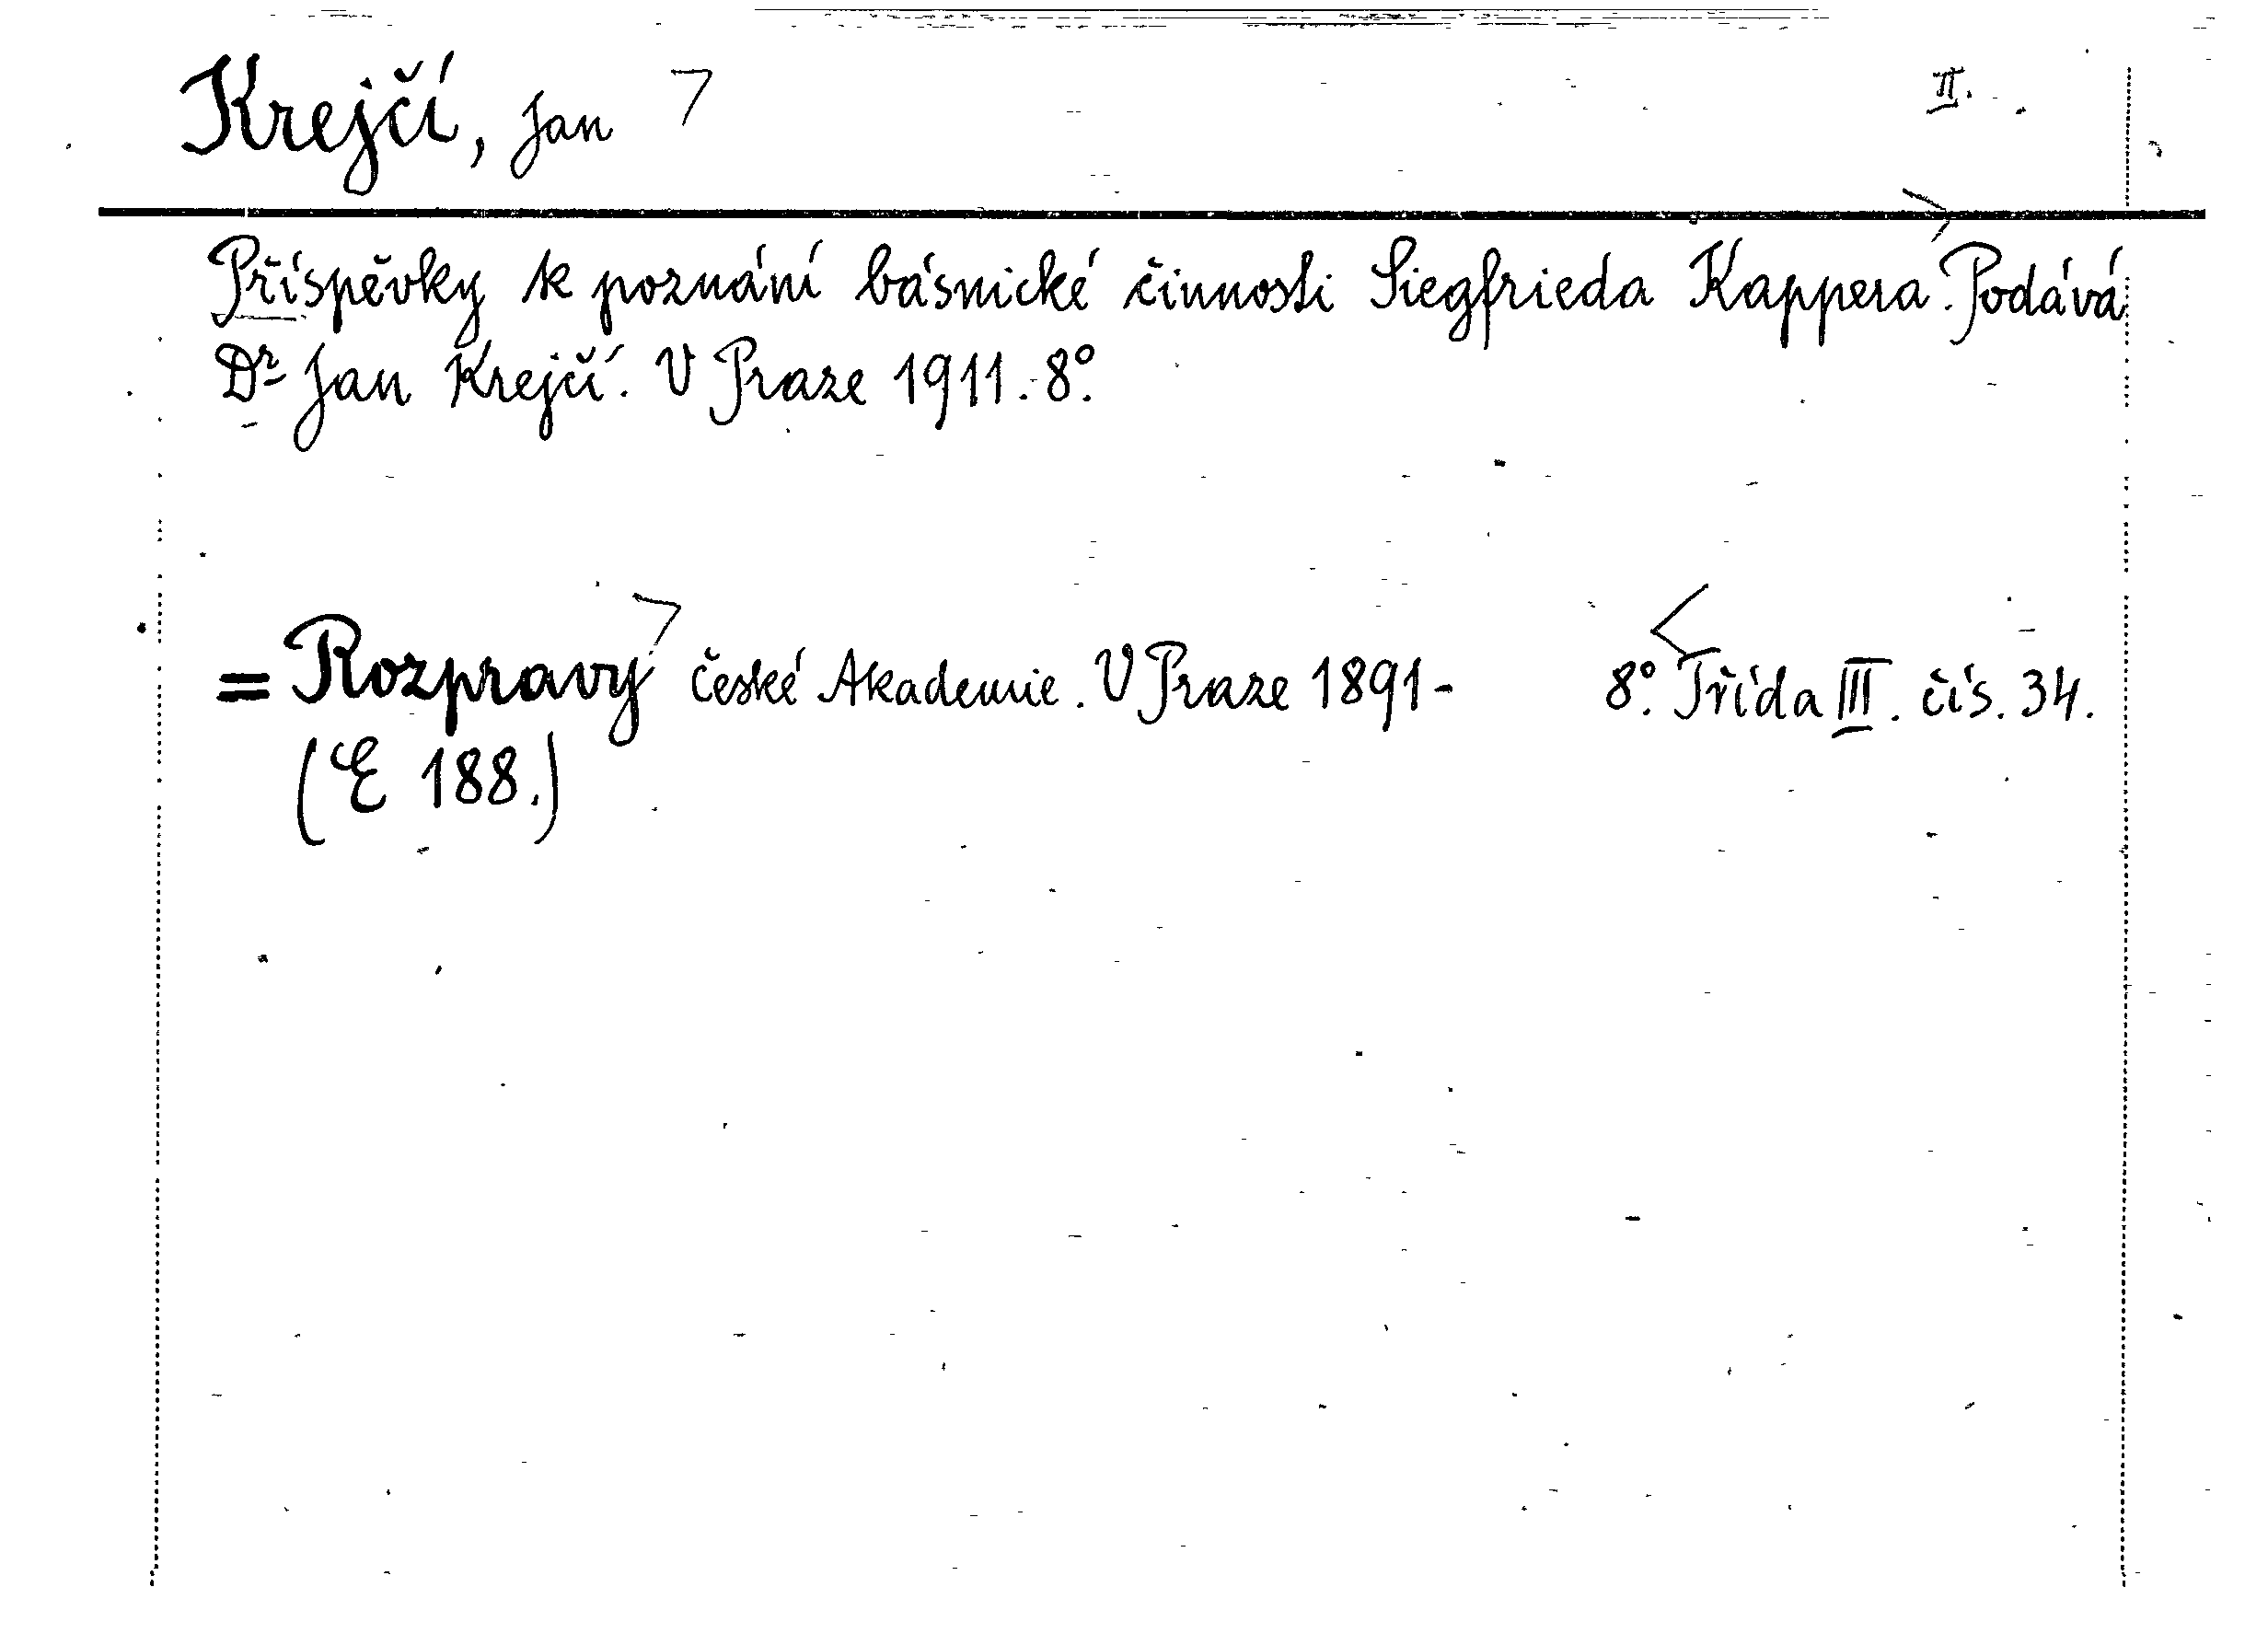 Krejčí, Jan II.
Příspěvky k poznání básnické činnosti Siegfrieda Kappera. Podává
Dr Jan Krejčí. V Praze 1911. 8°.
= Rozpravy České Akademie. V Praze 1891- 8°. Třída III. čís. 34.
(E 188.)